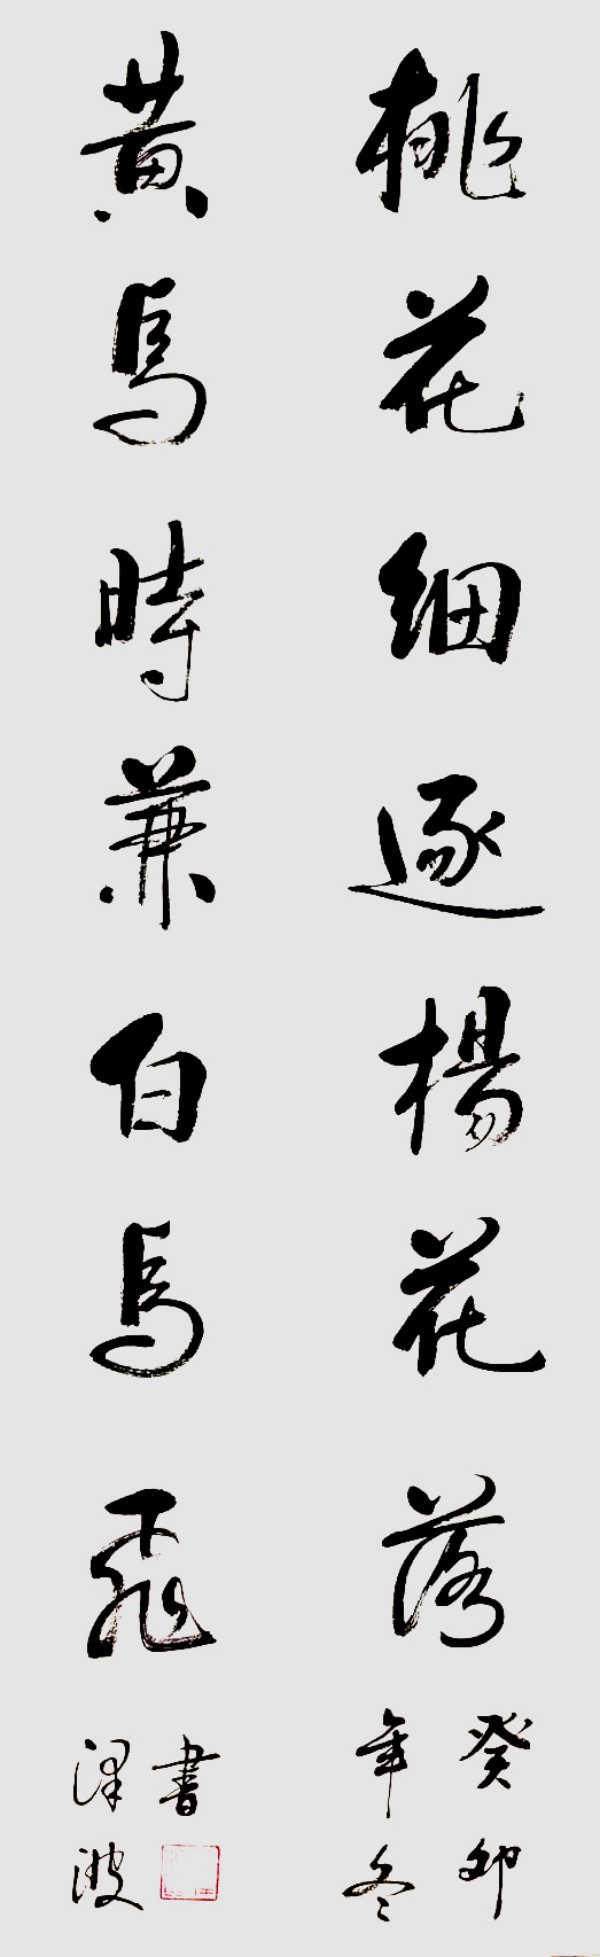 桃花細逐楊花落
黃鳥時兼白鳥飛
癸卯
年冬
書
澤波